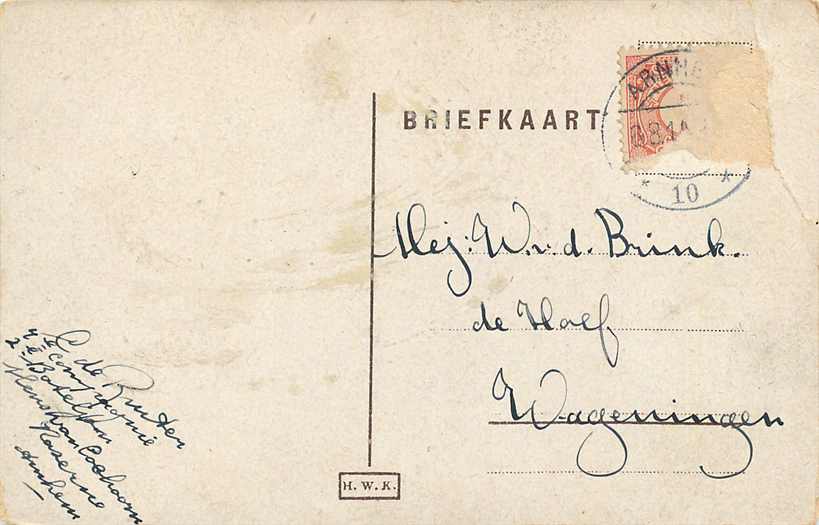 BRIEFKAART
ARNHE
10
Mej. W. v. d. Brink.
de Hoef
Wageningen
C de Ruiter
4e Compagnie
2e Bataljon
Menno van Coehoorn
Kazerne
Arnhem
H. W. K.